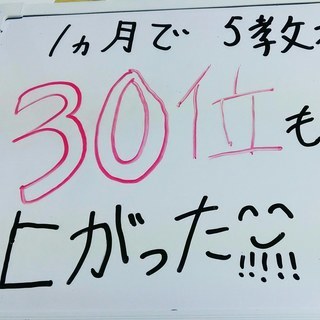 1ヵ月で 5教
30位も
上がった!!!!!